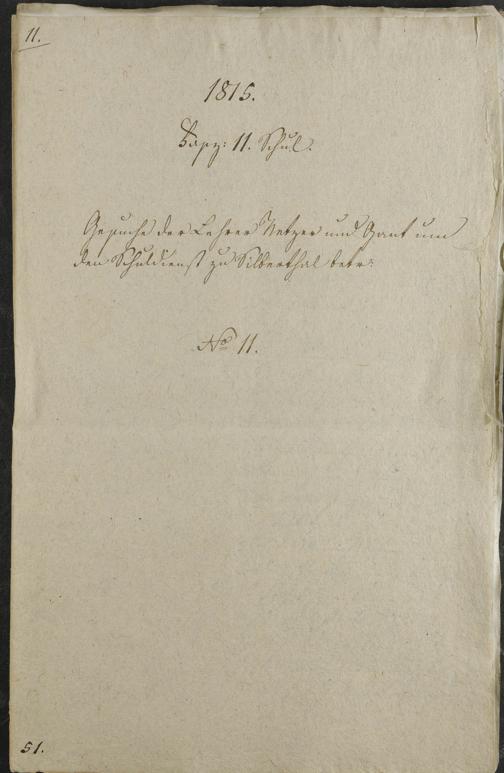 11.
1815.
11. Schul.
Gesuche der Lehrer Netzer und Gant um
den Schuldienst zu Silberthal betr:
No 11.
51.